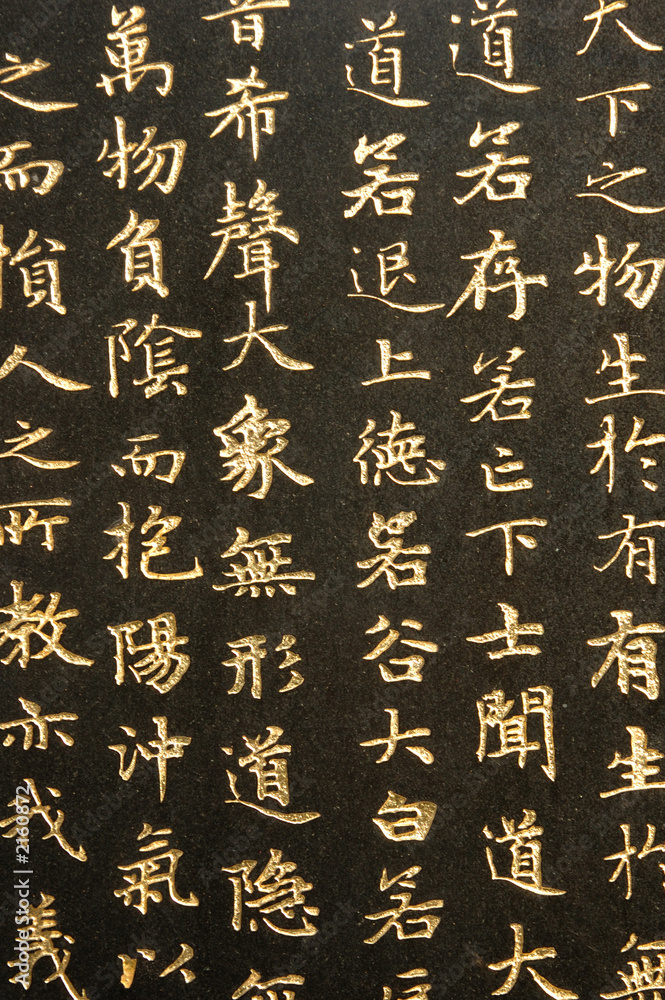 天下之物生於有有生於無
道若存若亡下士聞道大
道若退上德若谷大白若
音希聲大象無形道隱無
萬物負陰而抱陽沖氣以
之而損人之所教亦我義
Adobe Stock | #2160872